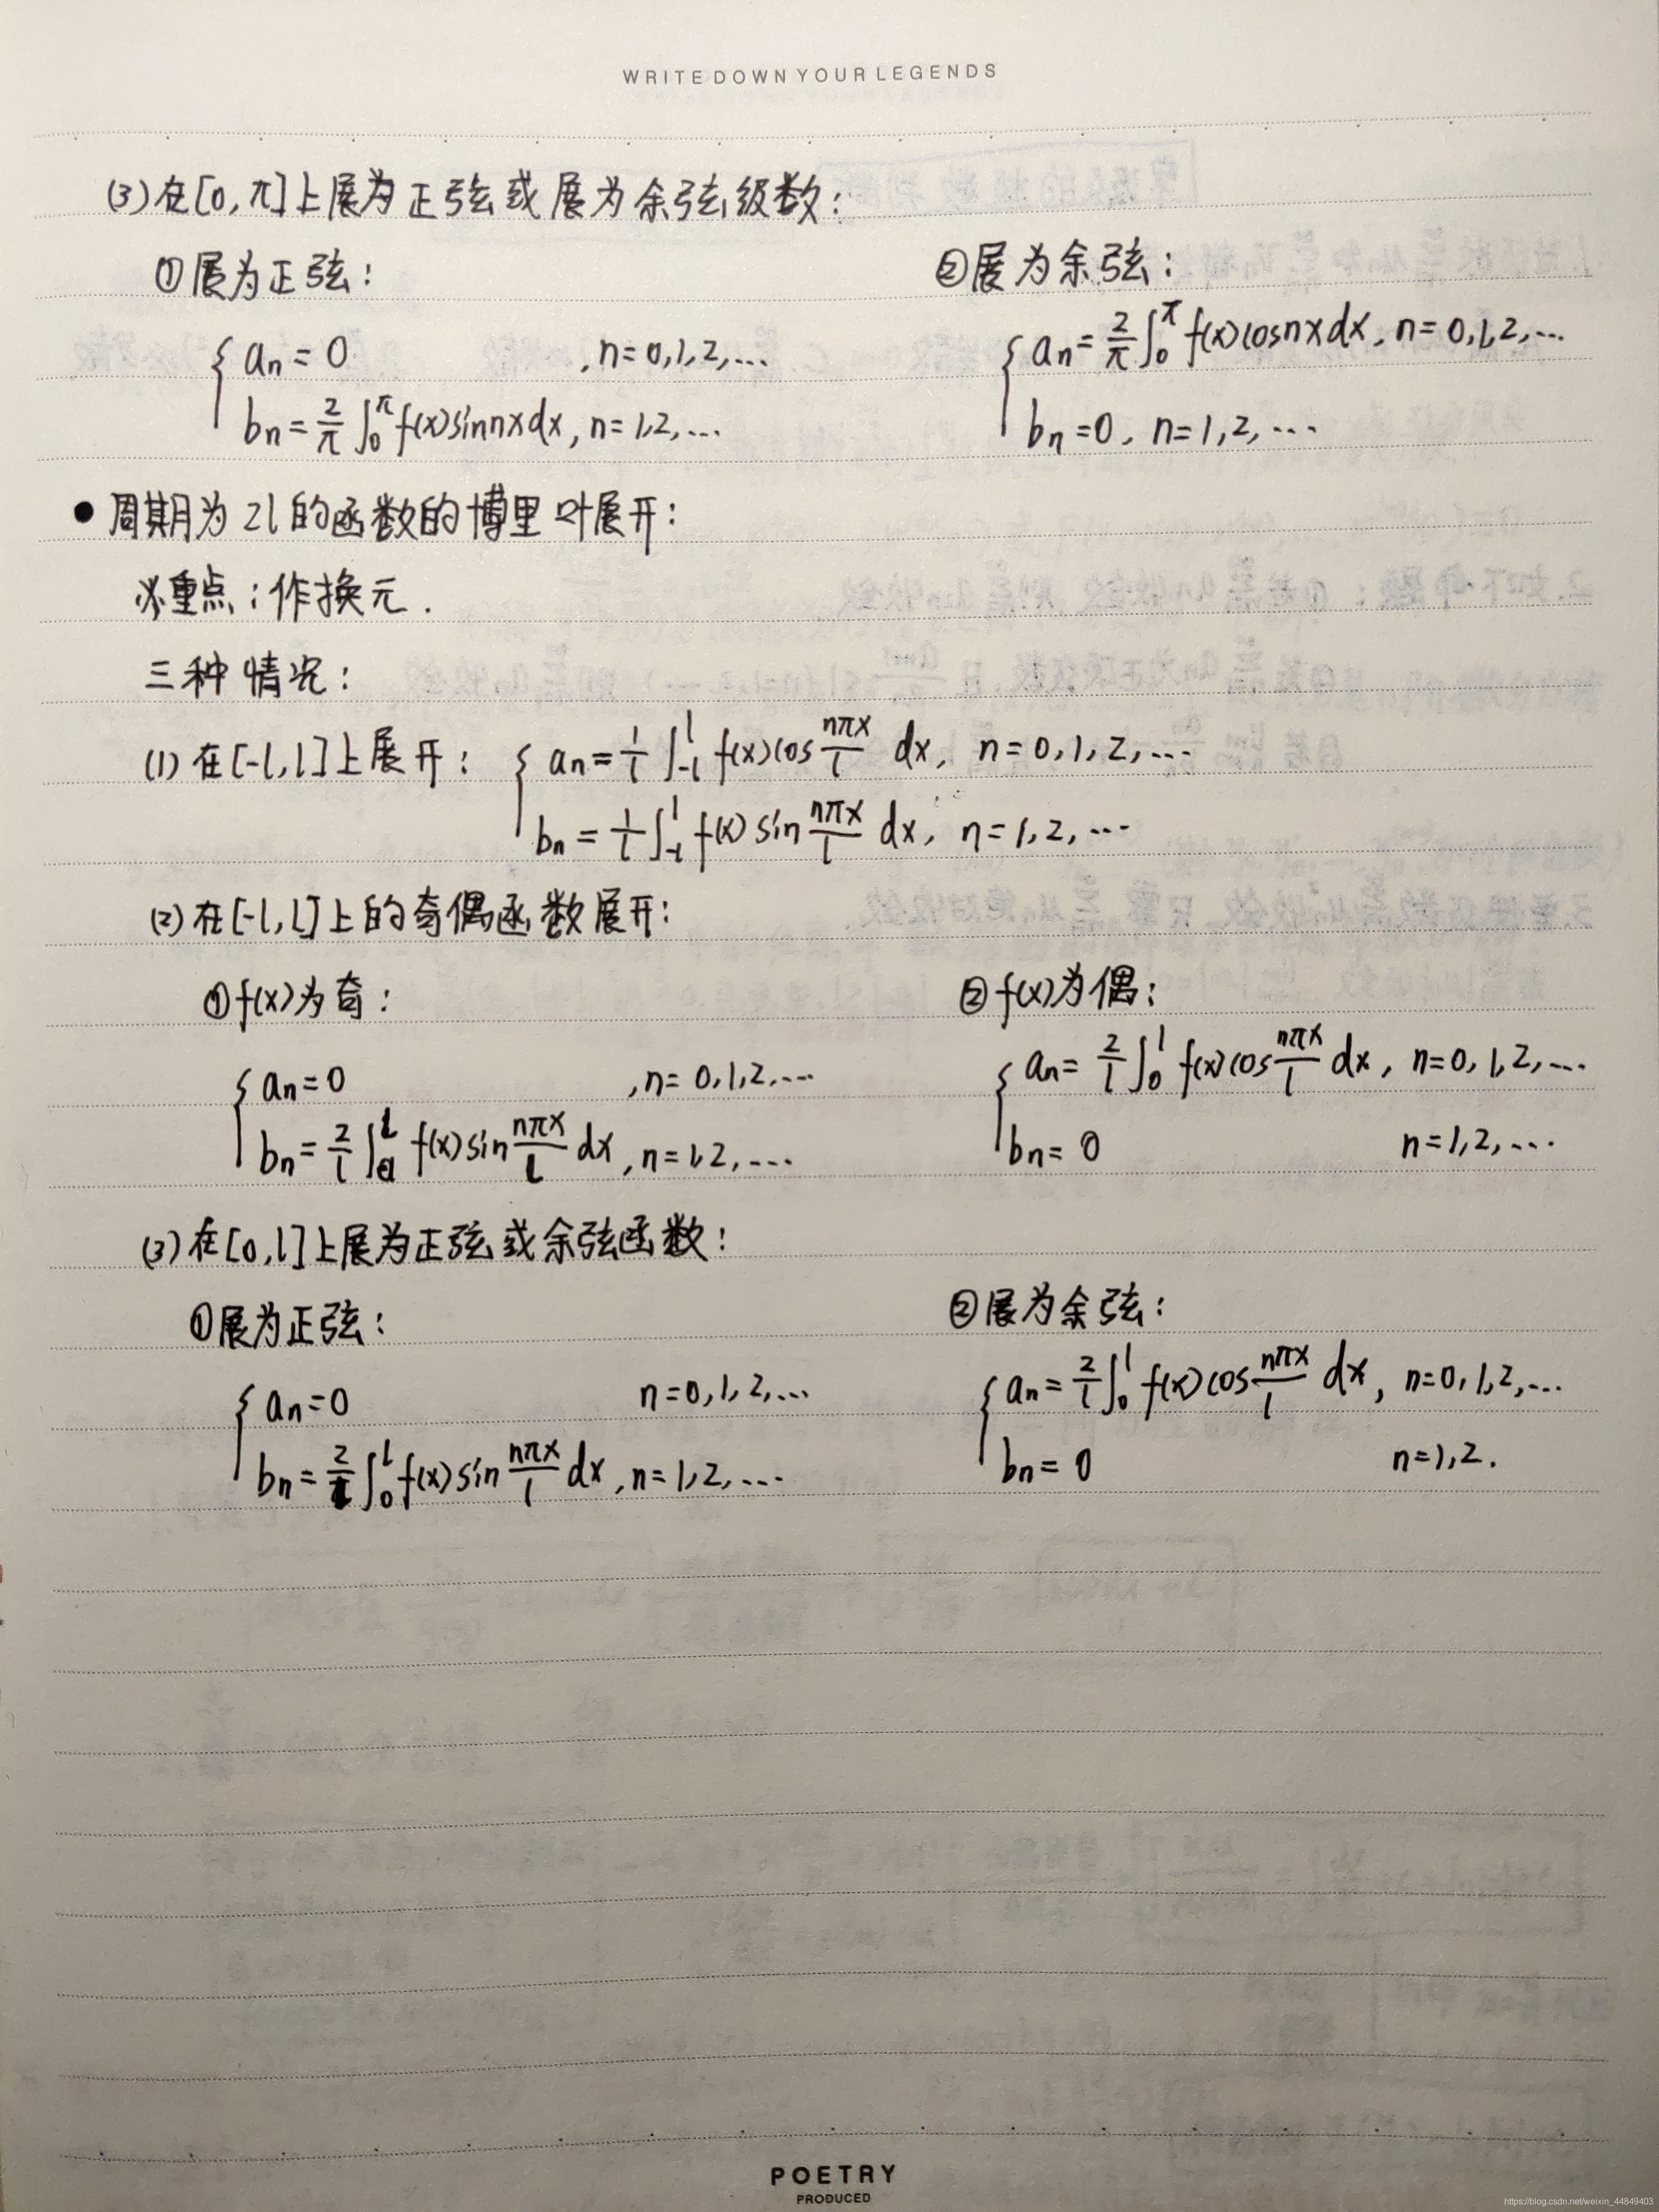 WRITE DOWN YOUR LEGENDS
(3) 在[0, π]上展为正弦或展为余弦级数:
①展为正弦: ②展为余弦:
{ aₙ = 0 , n=0,1,2,... { aₙ = 2/π ∫₀^π f(x)cosnxdx, n=0,1,2,...
bₙ = 2/π ∫₀^π f(x)sinnxdx, n=1,2,... bₙ=0, n=1,2,...
● 周期为2l的函数的博里叶展开:
※重点:作换元.
三种情况:
(1) 在[-l,l]上展开: { aₙ = 1/l ∫₋ₗ^l f(x)cos nπx/l dx, n=0,1,2,...
bₙ = 1/l ∫₋ₗ^l f(x)sin nπx/l dx, n=1,2,...
(2) 在[-l,l]上的奇偶函数展开:
①f(x)为奇: ②f(x)为偶:
{ aₙ=0 ,n=0,1,2,... { aₙ = 2/l ∫₀^l f(x)cos nπx/l dx, n=0,1,2,...
bₙ = 2/l ∫₀^l f(x)sin nπx/l dx, n=1,2,... bₙ=0 n=1,2,...
(3) 在[0,l]上展为正弦或余弦函数:
①展为正弦: ②展为余弦:
{ aₙ=0 n=0,1,2,... { aₙ = 2/l ∫₀^l f(x)cos nπx/l dx, n=0,1,2,...
bₙ = 2/l ∫₀^l f(x)sin nπx/l dx, n=1,2,... bₙ=0 n=1,2.
POETRY
PRODUCED
https://blog.csdn.net/weixin_44849403